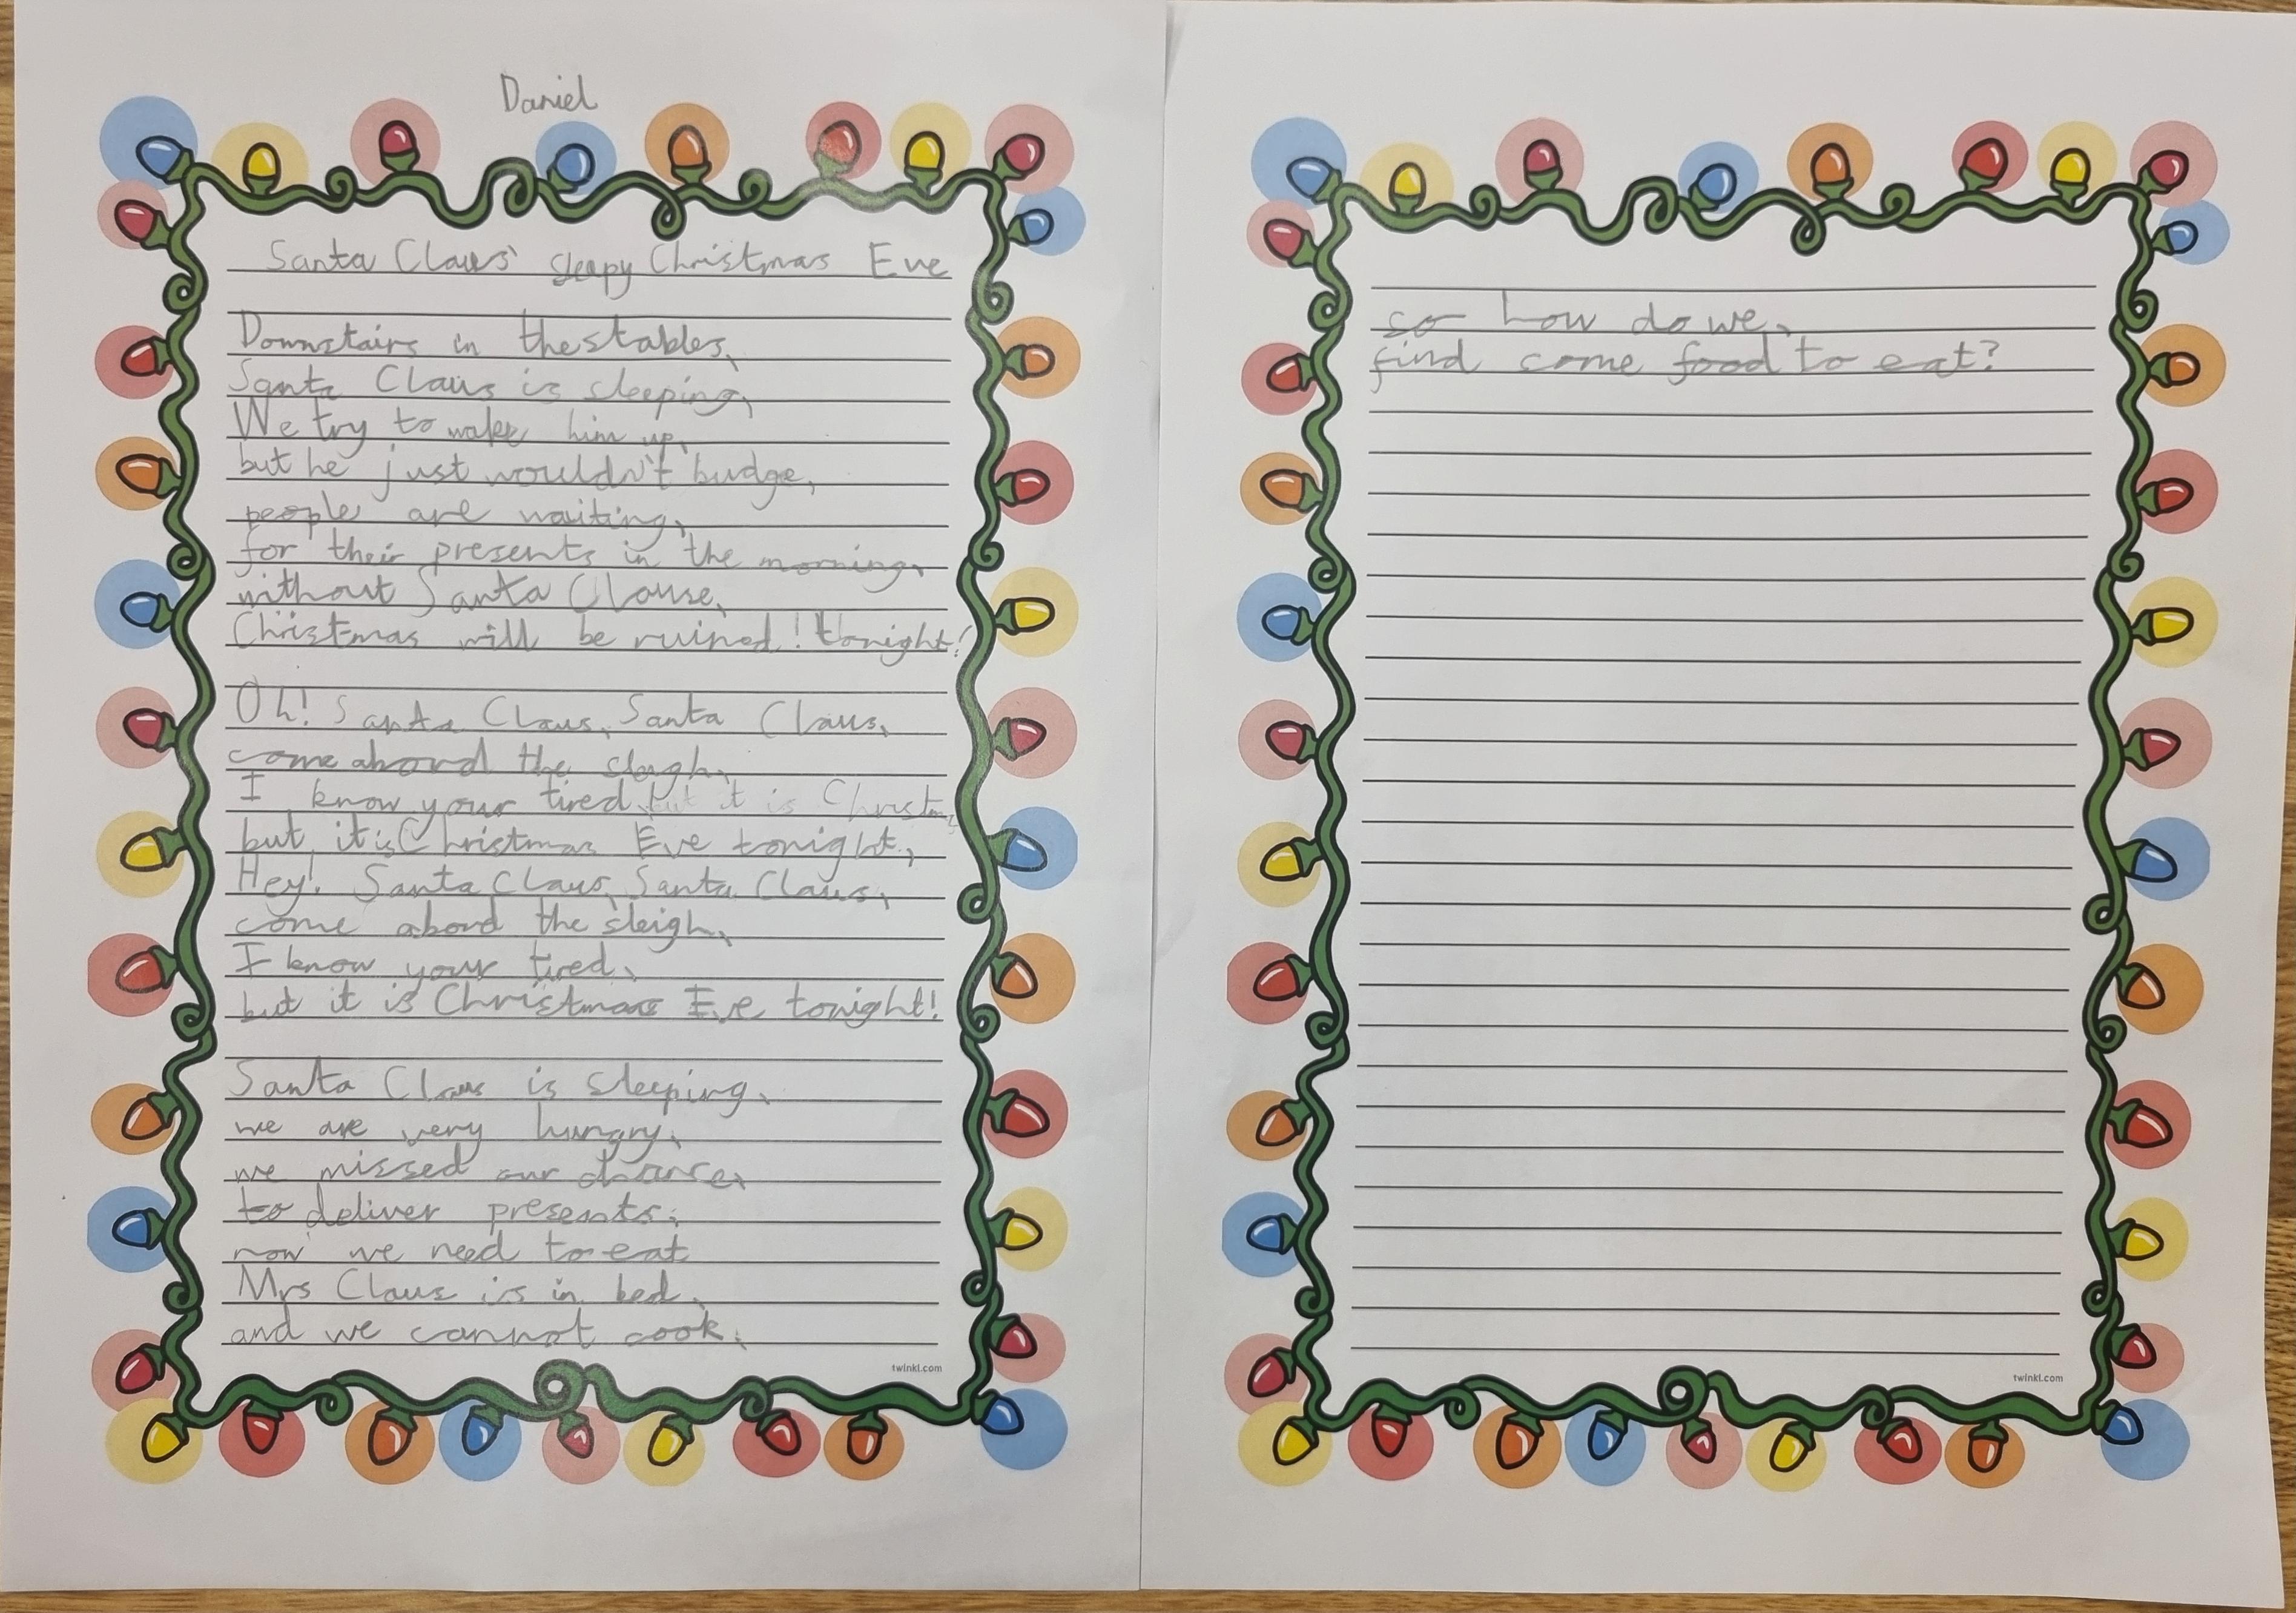 Daniel
Santa Claus' sleepy Christmas Eve
Downstairs in the stables,
Santa Claus is sleeping,
We try to wake him up,
but he just wouldn't budge,
people are waiting,
for their presents in the morning,
without Santa Clause,
Christmas will be ruined! tonight!
Oh! Santa Claus, Santa Claus,
come abord the sleigh,
I know your tired, but it is Christm
but it is Christmas Eve tonight,
Hey! Santa Claus, Santa Claus,
come abord the sleigh,
I know your tired,
but it is Christmas Eve tonight!
Santa Claus is sleeping,
we are very hungry,
we missed our chance,
to deliver presents,
now we need to eat
Mrs Claus is in bed,
and we cannot cook,
twinkl.com
so how do we,
find some food to eat?
twinkl.com